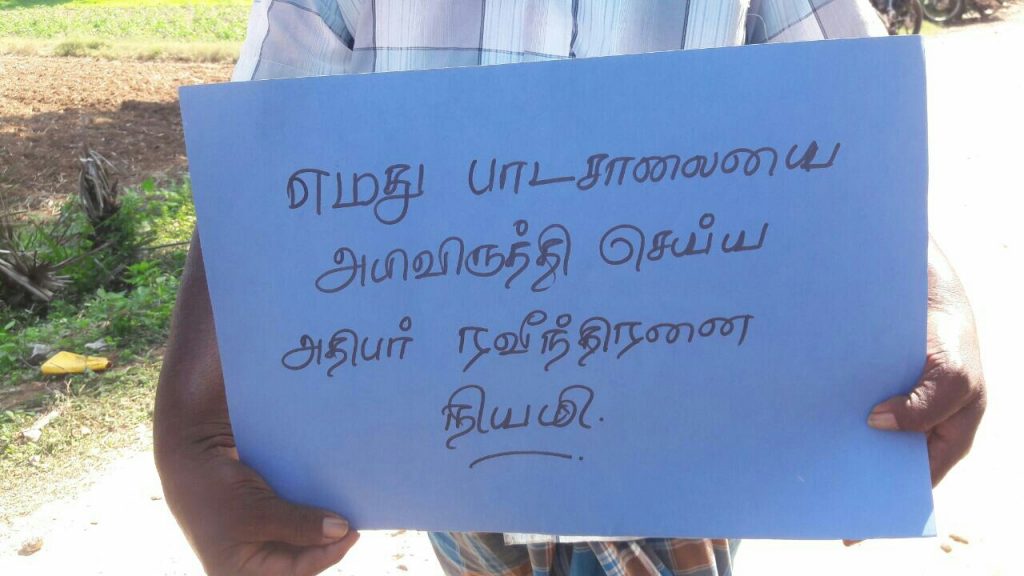 எமது பாடசாலையை
அபிவிருத்தி செய்ய
அதிபர் ரவீந்திரனை
நியமி.